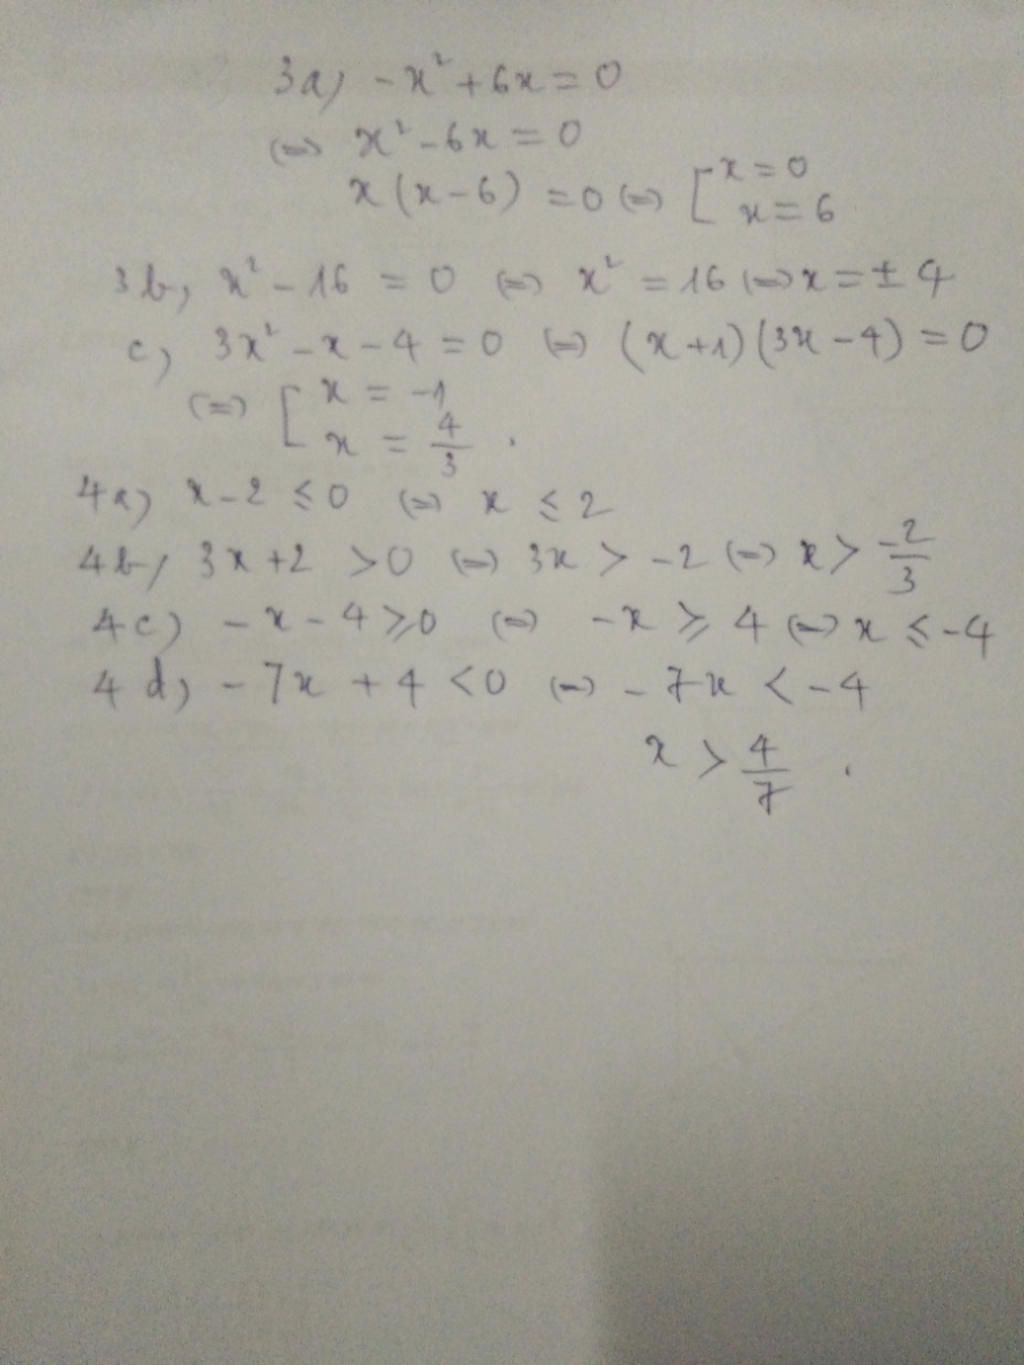 3a) -x² + 6x = 0
⇔ x² - 6x = 0
x(x - 6) = 0 ⇔ [ x = 0
x = 6
3b, x² - 16 = 0 ⇔ x² = 16 ⇔ x = ± 4
c) 3x² - x - 4 = 0 ⇔ (x + 1)(3x - 4) = 0
⇔ [ x = -1
x = 4/3 .
4a) x - 2 ≤ 0 ⇔ x ≤ 2
4b, 3x + 2 > 0 ⇔ 3x > -2 ⇔ x > -2/3
4c) -x - 4 ≥ 0 ⇔ -x ≥ 4 ⇔ x ≤ -4
4d, -7x + 4 < 0 ⇔ -7x < -4
x > 4/7 .